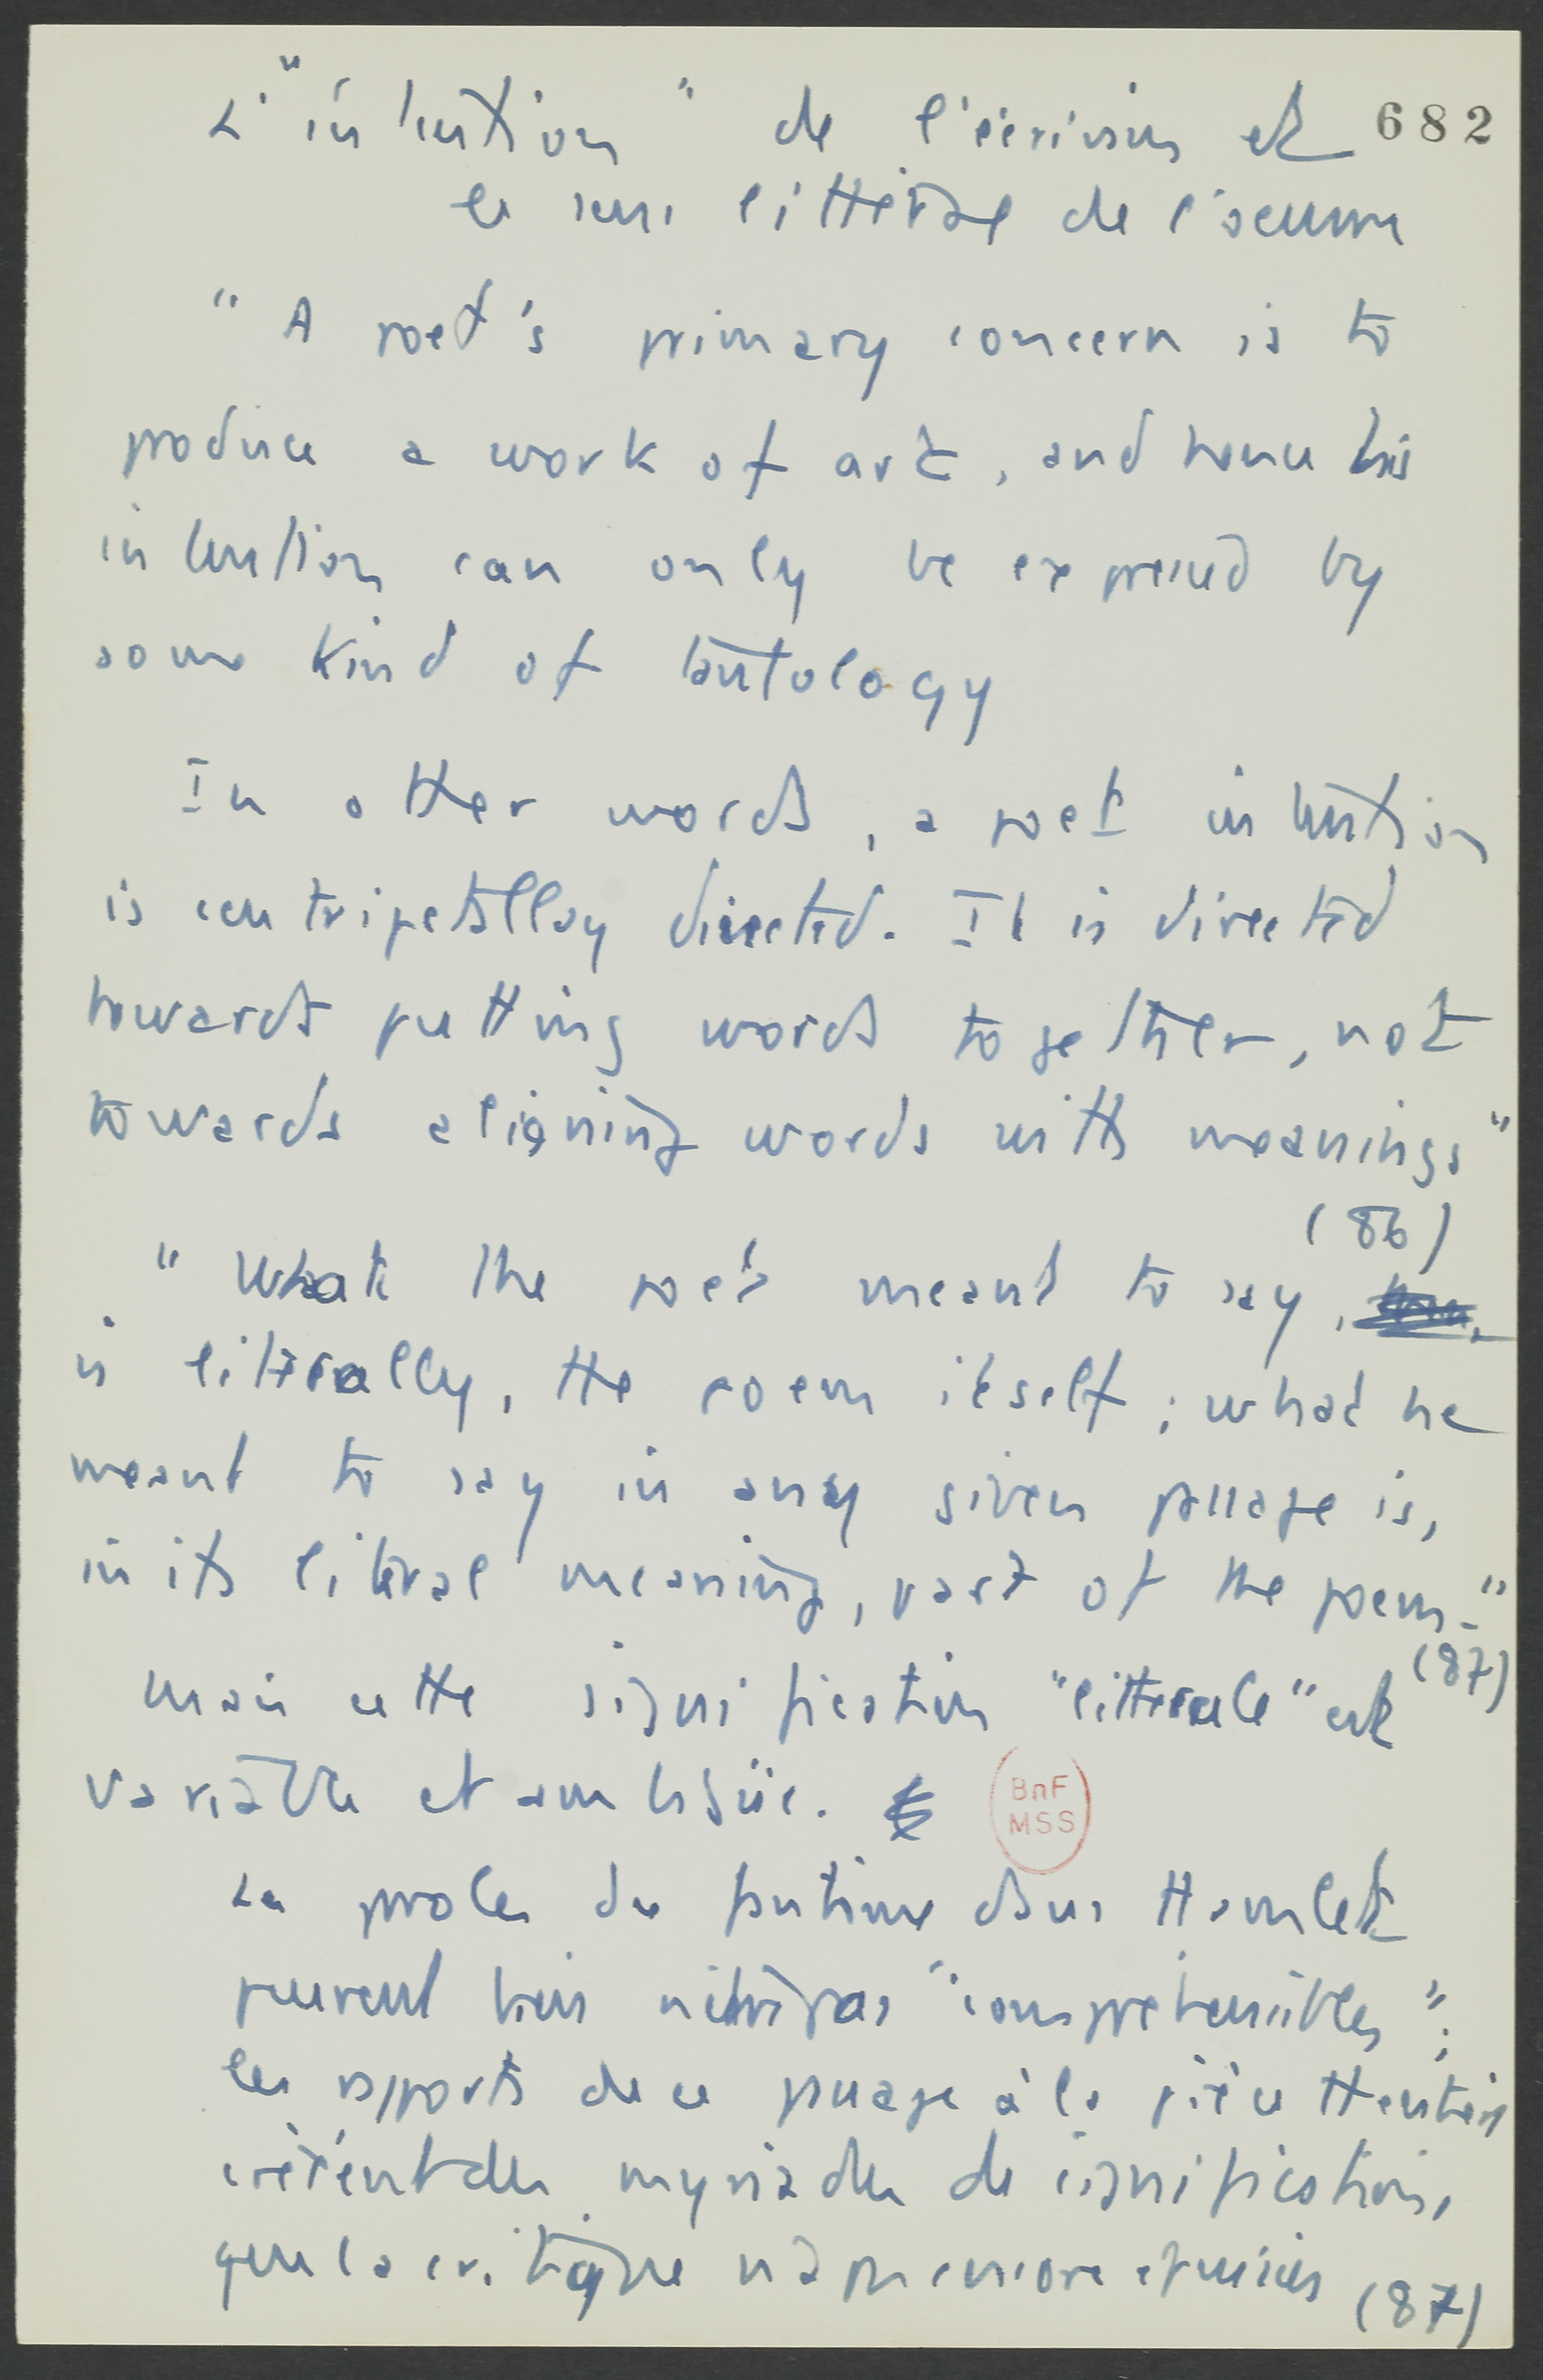 L'"intention" de l'écrivain et 682
le sens littéral de l'oeuvre
" A poet's primary concern is to
produce a work of art, and hence his
intention can only be expressed by
some kind of tautology
In other words, a poet intention
is centripetallay directed. It is directed
towards putting words together, not
towards aligning words with meanings"
(86)
" What the poet meant to say,
is literally, the poem itself ; what he
meant to say in any given passage is,
in its literal meaning, part of the poem."
(87)
Mais cette signification "litterale" est
variable et ambigüe.
BnF
MSS
Les paroles du fantôme dans Hamlet
peuvent bien être "compréhensibles";
les rapports de ce passage à la pièce
créent des myriades de significations,
que la critique n'a pas encore épuisées (87)